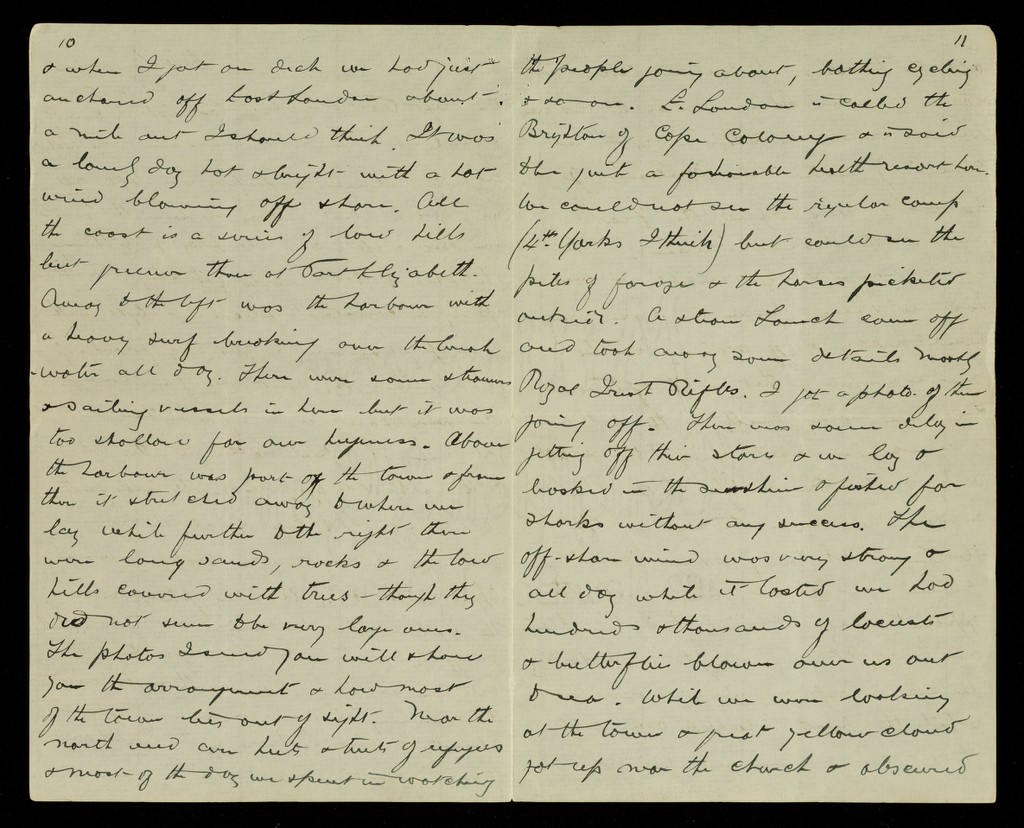 10
& when I got on deck we had just
anchored off East London about
a mile out I should think. It was
a lovely day hot & bright with a hot
wind blowing off shore. All
the coast is a series of low hills
but greener than at Port Elizabeth.
Away to the left was the harbour with
a heavy surf breaking over the break
-water all day. There were some steamers
& sailing vessels in here but it was
too shallow for our hugeness. Above
the harbour was part of the town & from
there it stretched away to where we
lay while further to the right there
were long sands, rocks & the low
hills covered with trees - though they
did not seem to be very large ones.
The photos I send you will show
you the arrangement & how most
of the town lies out of sight. Near the
north end are huts & tents of refugees
& most of the day we spent in watching
11
the people going about, bathing cycling
& so on. E. London is called the
Brighton of Cape Colony & is said
to be quite a fashionable health resort here.
We could not see the regular camp
(4th Yorks I think) but could see the
piles of forage & the horses picketed
outside. A steam launch came off
and took away some details mostly
Royal Irish Rifles. I got a photo. of them
going off. There was some delay in
getting off their stores & we lay &
basked in the sunshine & fished for
sharks without any success. The
off-shore wind was very strong &
all day while it lasted we had
hundreds & thousands of locusts
& butterflies blown over us out
to sea. While we were looking
at the town a great yellow cloud
got up near the church & obscured